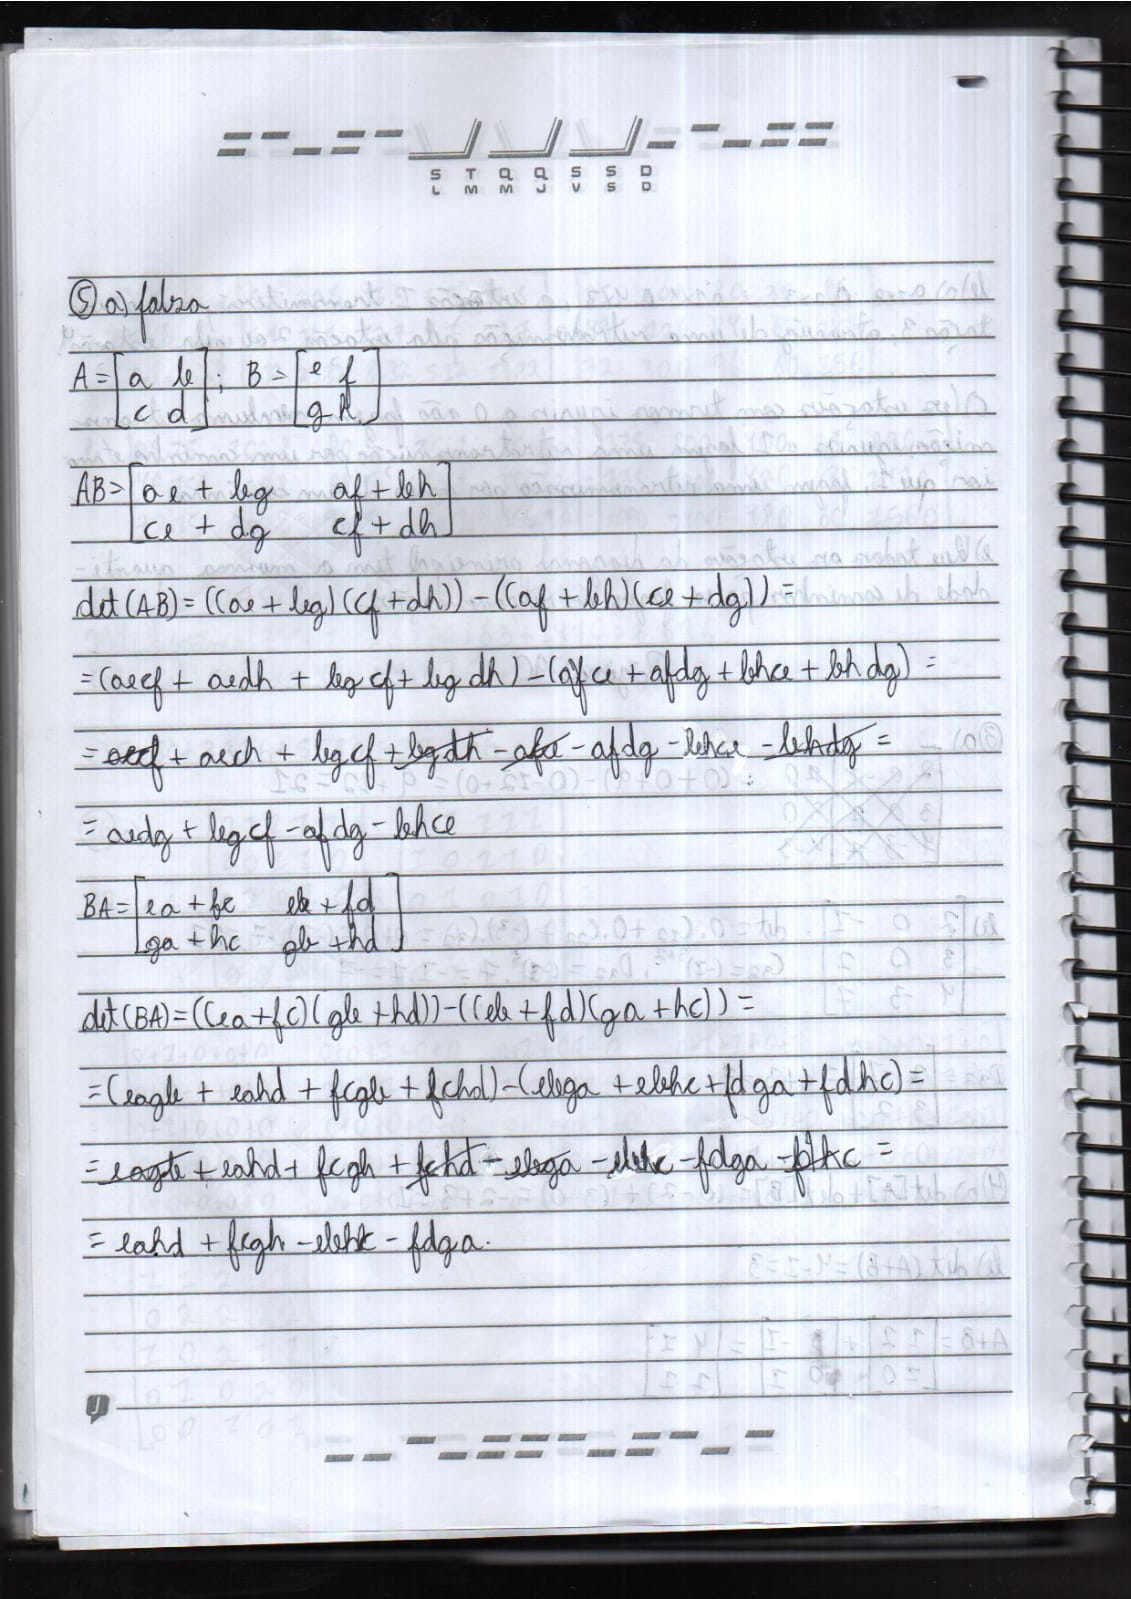 S T Q Q S S D
L M M J V S D
⑤ a) falsa
A = [a b; B = [e f
c d] g h]
AB = [ae + bg af + bh
ce + dg cf + dh]
det(AB) = ((ae + bg)(cf + dh)) - ((af + bh)(ce + dg)) =
= (aecf + aedh + bgcf + bgdh) - (afce + afdg + bhce + bhdg) =
= aecf + aech + bgcf + bgdh - afce - afdg - bhce - bhdg =
= aedg + bgcf - afdg - bhce
BA = [ea + fc eb + fd
ga + hc gb + hd]
det(BA) = ((ea + fc)(gb + hd)) - ((eb + fd)(ga + hc)) =
= (eagb + eahd + fcgb + fchd) - (ebga + ebhc + fdga + fdhc) =
= eagb + eahd + fcgh + fchd - ebga - ebhc - fdga - fdhc =
= eahd + fcgh - ebhc - fdga.